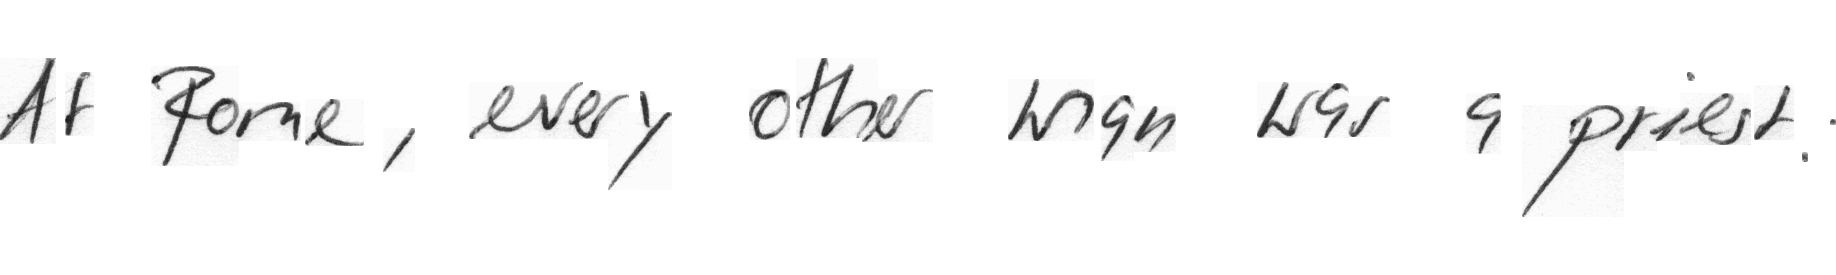 At Rome, every other man was a priest.